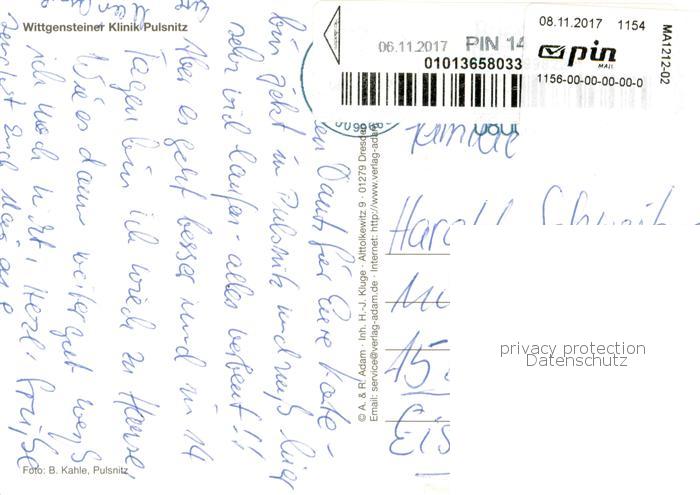 Wittgensteiner Klinik Pulsnitz
06.11.2017 PIN 14
01013658033
08.11.2017 1154
pin
MAIL
1156-00-00-00-00-0
MA1212-02
Familie
Harald
45
privacy protection
Datenschutz
© A. & R. Adam · Inh. H.-J. Kluge · Alttolkewitz 9 · 01279 Dresden
Email: service@verlag-adam.de · Internet: http://www.verlag-adam.de
Dank für Eure Karte -
bin jetzt in Pulsnitz und muß hier
sehr viel laufen - alles verbeut!!
Aber es geht besser und in 14
Tagen bin ich wieder zu Hause,
Wie es dann weitergeht weiß
ich noch nicht. Herzl. Grüße
Foto: B. Kahle, Pulsnitz